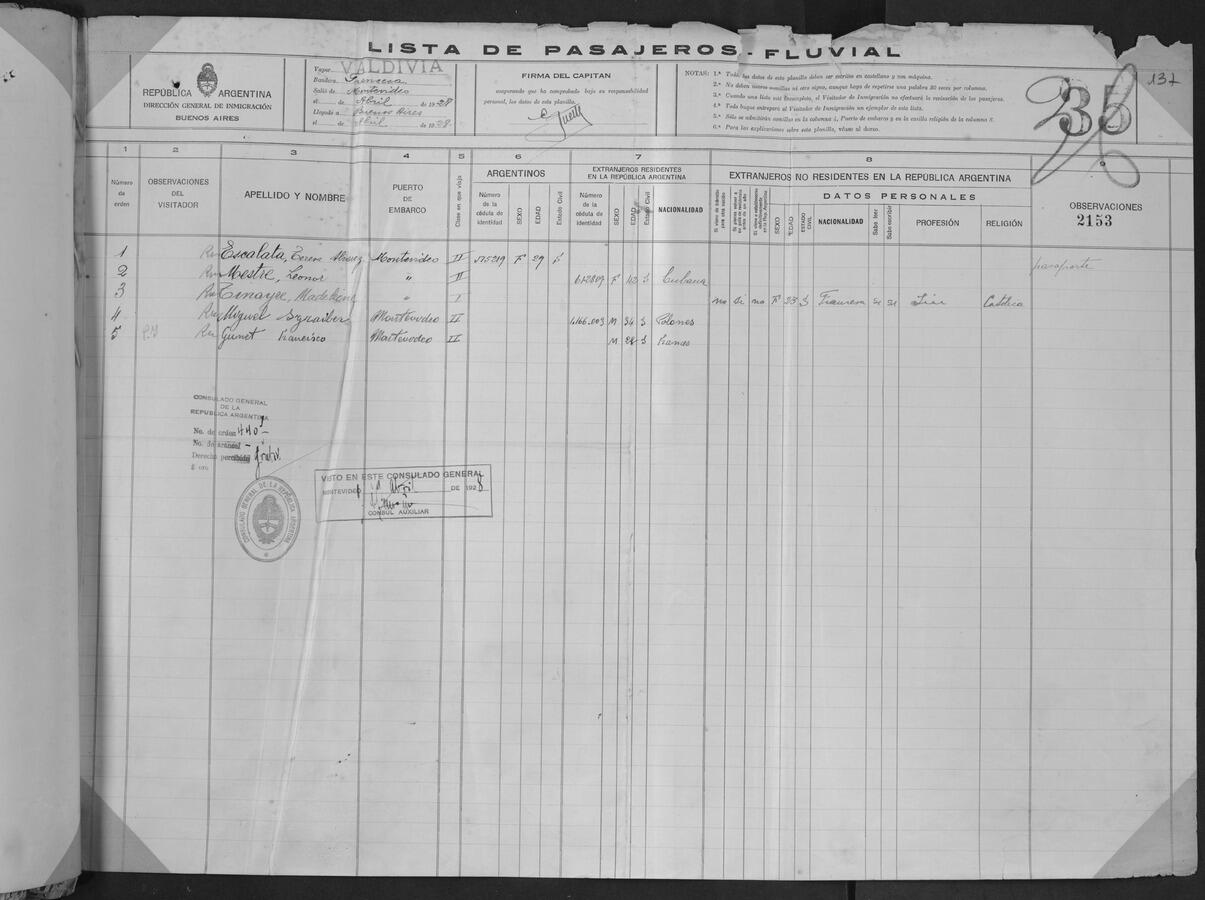 LISTA DE PASAJEROS - FLUVIAL
137
REPÚBLICA ARGENTINA
DIRECCIÓN GENERAL DE INMIGRACIÓN
BUENOS AIRES
Vapor VALDIVIA
Bandera Francesa
Salió de Montevideo
el de Abril de 1928
Llegado a Buenos Aires
el de Abril de 1928.
FIRMA DEL CAPITAN
asegurando que ha comprobado bajo su responsabilidad
personal, los datos de esta planilla.
NOTAS: 1.ª Todos los datos de esta planilla deben ser escritos en castellano y con máquina.
2.ª No deben usarse comillas ni otro signo, aunque haya de repetirse una palabra 30 veces por columna.
3.ª Cuando una lista esté incompleta, el Visitador de Inmigración no efectuará la revisación de los pasajeros.
4.ª Todo buque entregará al Visitador de Inmigración un ejemplar de esta lista.
5.ª Sólo se admitirán comillas en la columna 4, Puerto de embarco y en la casilla religión de la columna 8.
6.ª Para las explicaciones sobre esta planilla, véase al dorso.
35
1 2 3 4 5 6 7 8 9
Número de orden
OBSERVACIONES DEL VISITADOR
APELLIDO Y NOMBRE
PUERTO DE EMBARCO
Clase en que viaja
ARGENTINOS
Número de la cédula de identidad
SEXO
EDAD
Estado Civil
EXTRANJEROS RESIDENTES EN LA REPÚBLICA ARGENTINA
Número de la cédula de identidad
SEXO
EDAD
Estado Civil
NACIONALIDAD
EXTRANJEROS NO RESIDENTES EN LA REPÚBLICA ARGENTINA
DATOS PERSONALES
SEXO
EDAD
ESTADO CIVIL
NACIONALIDAD
Sabe leer
Sabe escribir
PROFESIÓN
RELIGIÓN
OBSERVACIONES
2153
1 Escalata, Montevideo II 175219 F 29 pasaporte
2 Mestre, Leonor " II F S Cubana
3 Madeleine " I no si no F 23 S Francesa si si Católica
4 Miguel Montevideo II M 34 S Polones
5 Francisco Montevideo II M S Frances
CONSULADO GENERAL
DE LA
REPUBLICA ARGENTINA
No. de orden 440
No. de arancel -
Derecho percibido gratis
$ oro
CONSULADO GENERAL DE LA REPÚBLICA ARGENTINA
VISTO EN ESTE CONSULADO GENERAL
MONTEVIDEO Abril DE 1928
CONSUL AUXILIAR